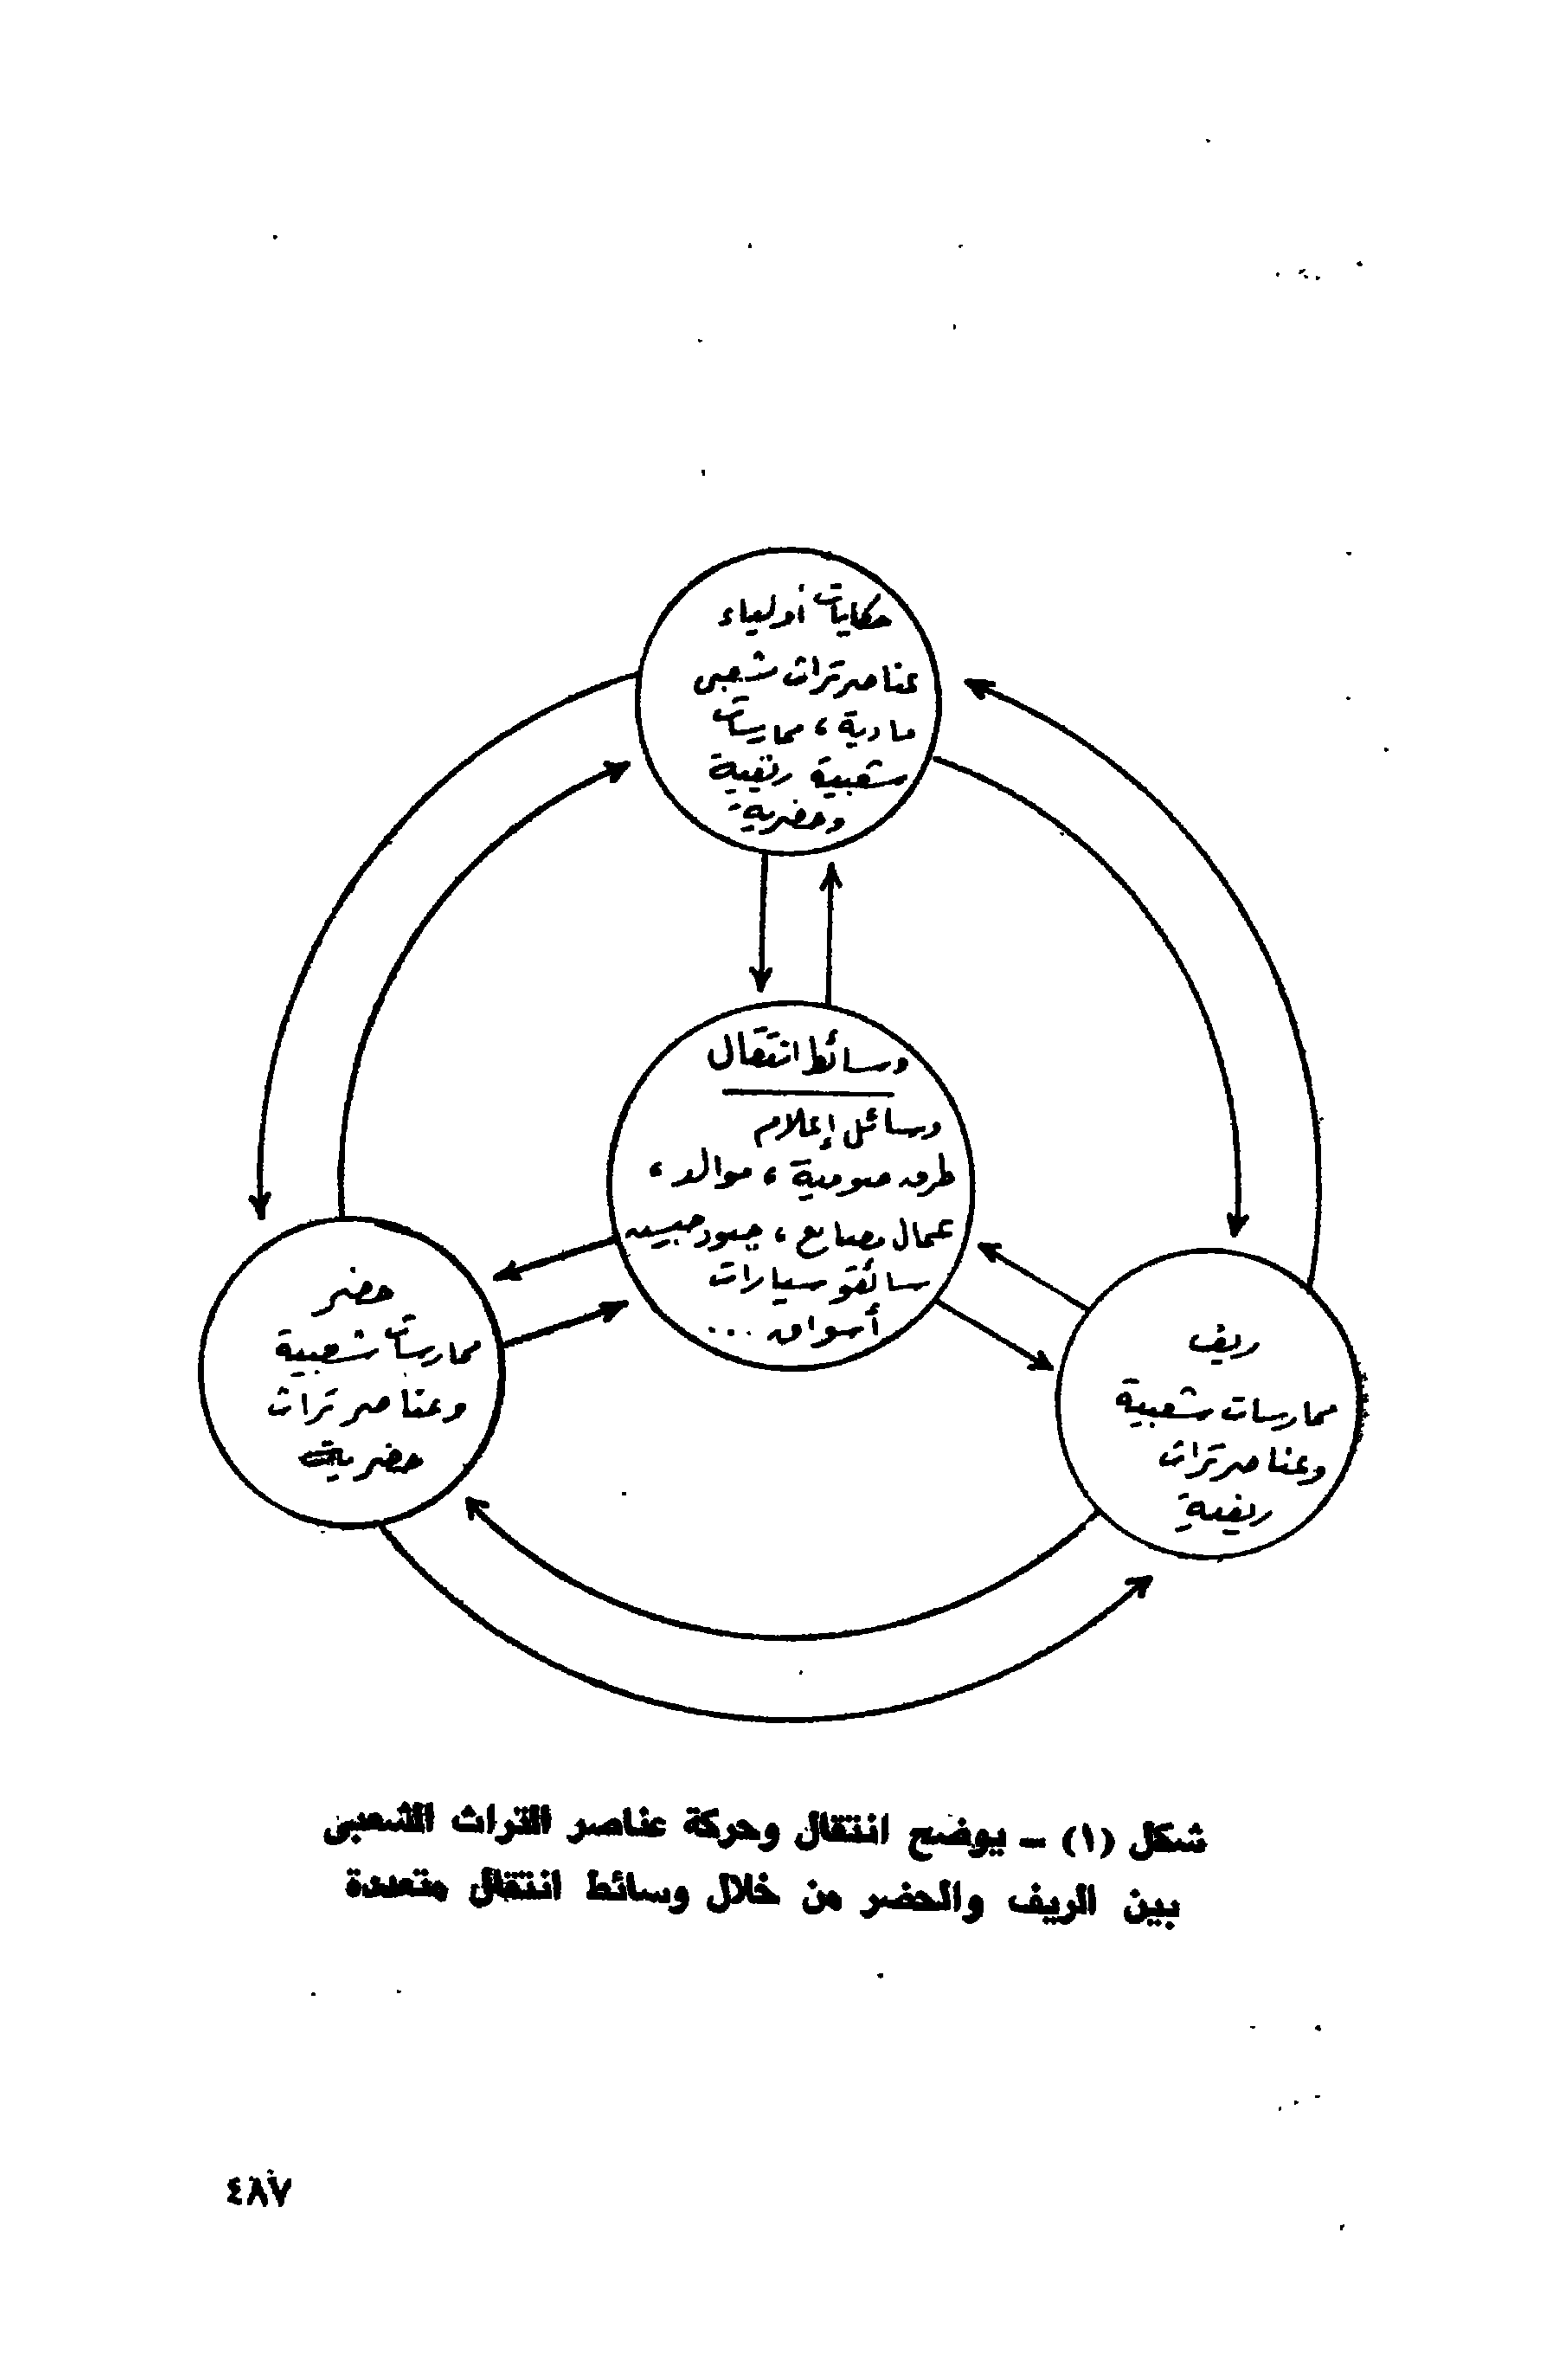 حكايات أولياء
عناصر تراث شعبى
مادية ، ممارسات
شعبية ريفية
وحضرية
وسائط انتقال
وسائل إعلام
طرق صوفية ، موالد ،
عمال مصانع ،
سائقو سيارات
أسواق ...
حضر
ممارسات شعبية
وعناصر تراث
حضرية
ريف
ممارسات شعبية
وعناصر تراث
ريفية
شكل (١) – يوضح انتقال وحركة عناصر التراث الشعبى
بين الريف والحضر من خلال وسائط انتقال متعددة
٤٨٧